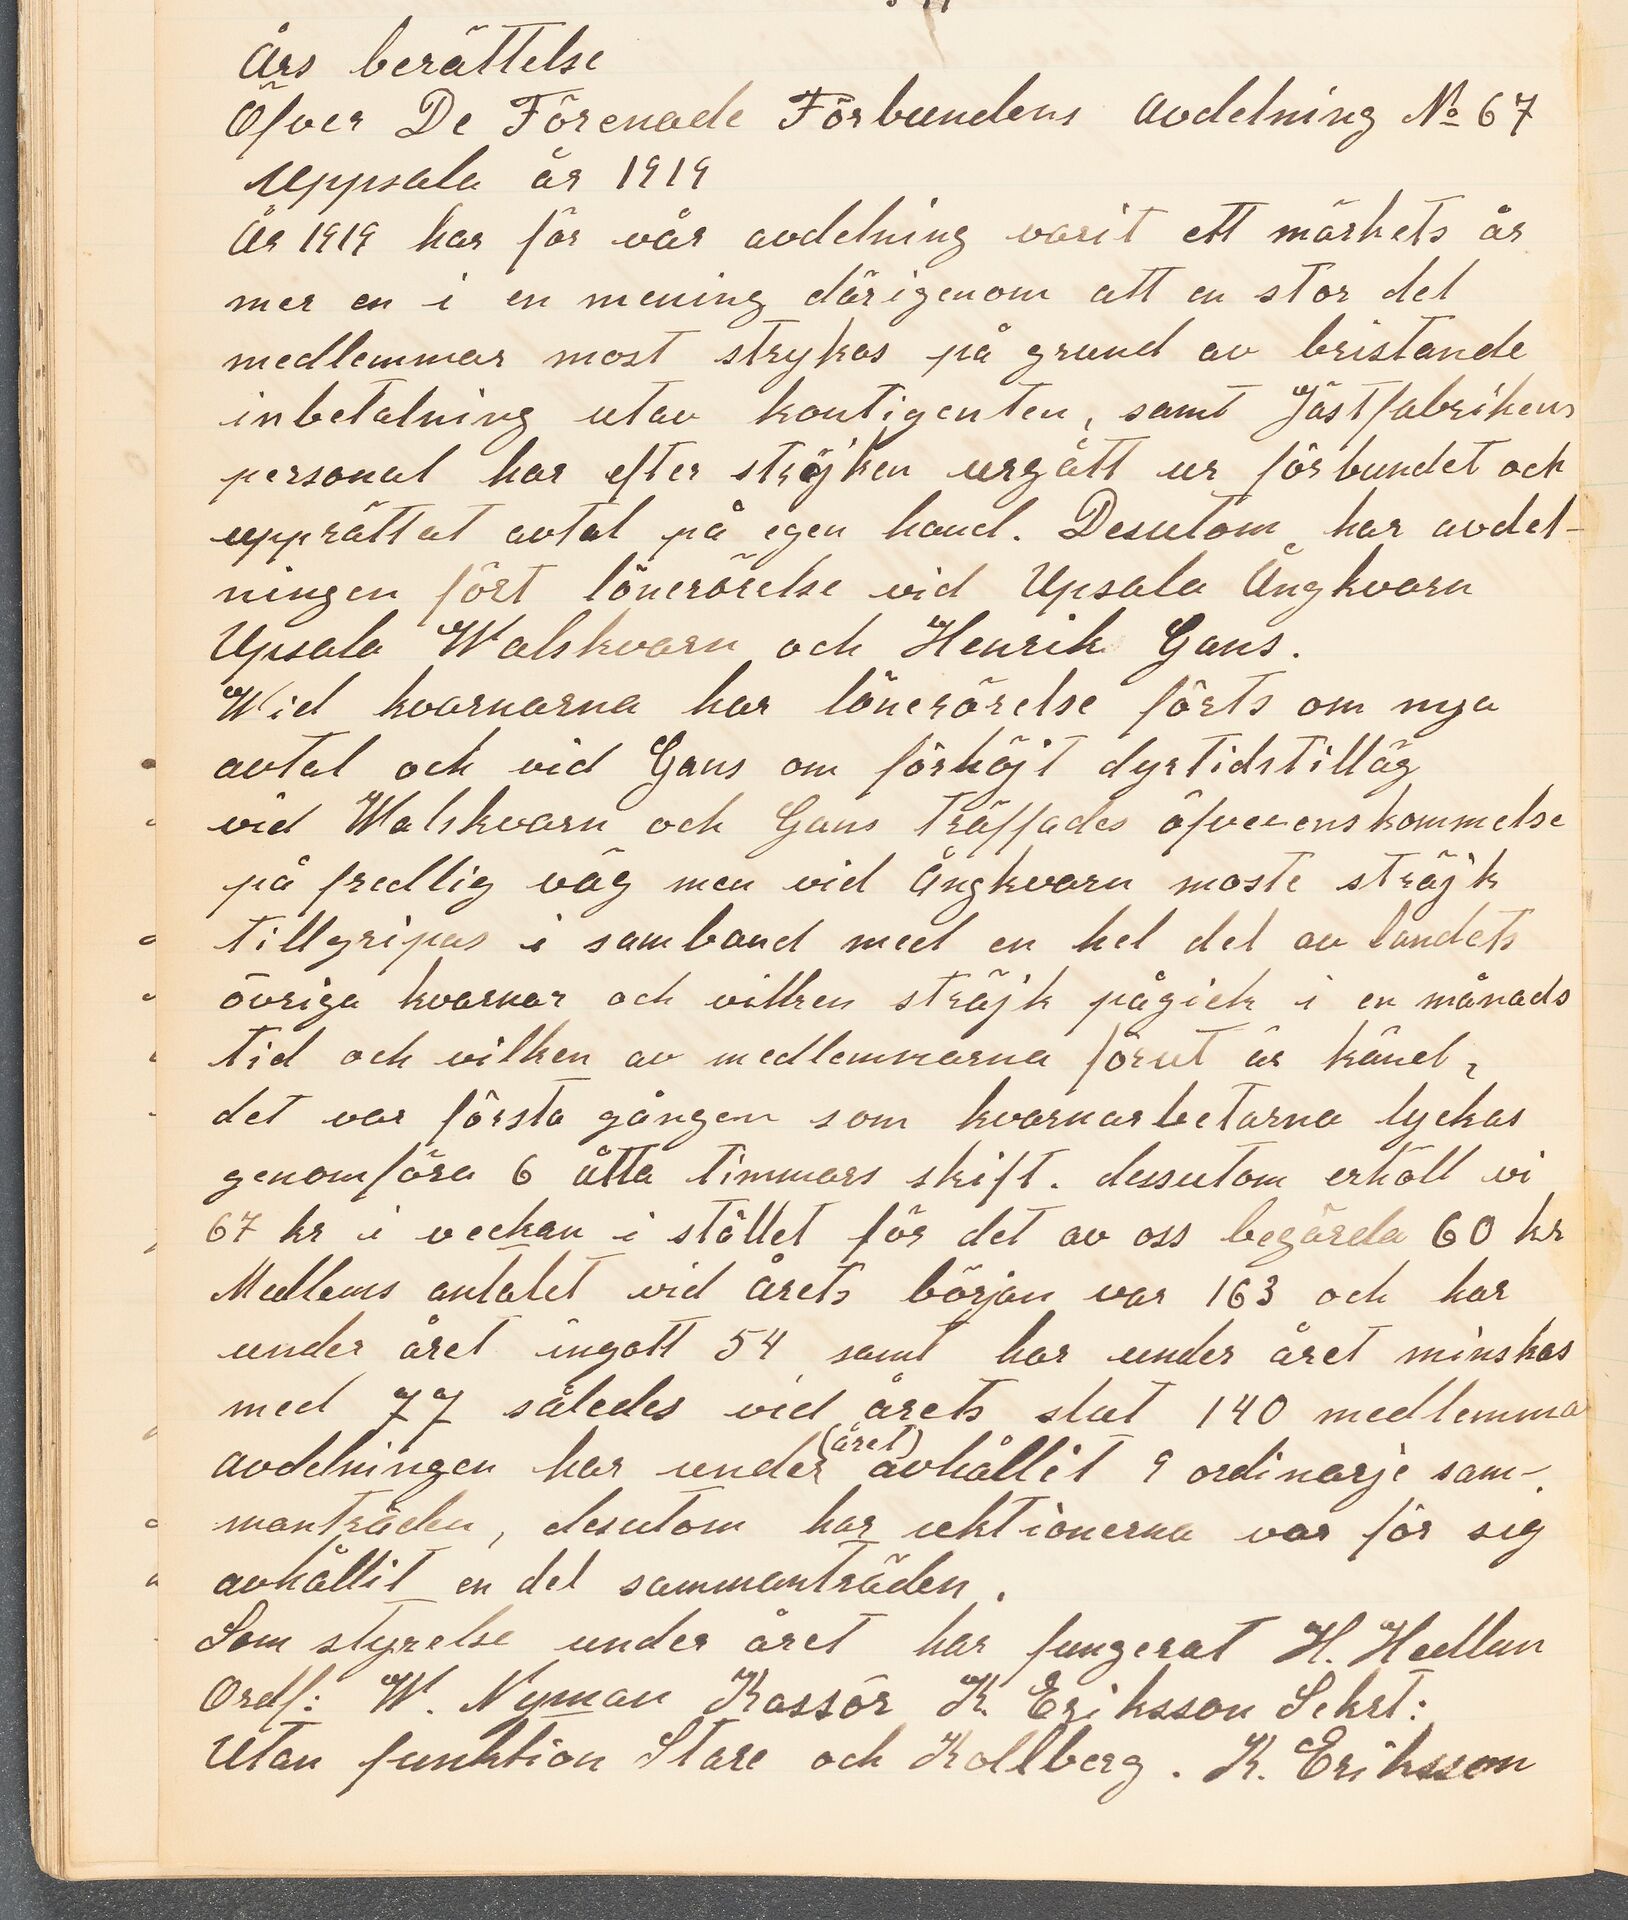 Års berättelse
Öfver De Förenade Förbundens Avdelning No 67
Uppsala år 1919
År 1919 har för vår avdelning varit ett märkets år
mer en i en mening därigenom att en stor del
medlemmar most strykas på grund av bristande
inbetalning utav kontigenten, samt Jästfabrikens
personal har efter sträjken urgått ur förbundet och
upprättat avtal på egen hand. Desutom har avdel-
ningen fört lönerörelse vid Upsala Ångkvarn
Upsala Walskvarn och Henrik Gans.
Wid kvarnarna har lönerörelse förts om nya
avtal och vid Gans om förhöjt dyrtidstilläg
vid Walskvarn och Gans träffades öfverenskommelse
på fredlig väg men vid Ångkvarn moste sträjk
tillgripas i samband med en hel del av landets
övriga kvarnar och vilken sträjk pågick i en månads
tid och vilken av medlemmarna förut är känd,
det var första gången som kvarnarbetarna lyckas
genomföra 6 åtta timmars skift. dessutom erhöll vi
67 kr i veckan i stället för det av oss begärda 60 kr
Medlems antalet vid årets början var 163 och har
under året ingått 54 samt har under året minskas
med 77 således vid årets slut 140 medlemma
avdelningen har under (året) avhållit 9 ordinarje sam-
manträden, desutom har sektionerna var för sig
avhållit en del sammanträden.
Som styrelse under året har fungerat H. Hedlun
Ordf: W. Nyman Kassör K. Eriksson Sekrt:
Utan funktion Stare och Kollberg. K. Eriksson